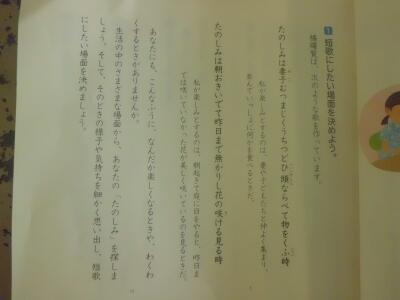 1 短歌にしたい場面を決めよう。
橘曙覧は、次のような歌を作っています。
たのしみは妻子むつまじくうちつどひ頭ならべて物をくふ時
私が楽しみとするのは、妻や子どもたちと仲よく集まり、
並んでいっしょに何かを食べるときだ。
たのしみは朝おきいでて昨日まで無かりし花の咲ける見る時
私が楽しみとするのは、朝起きて庭に目をやると、昨日ま
では咲いていなかった花が美しく咲いているのを見るときだ。
あなたにも、こんなふうに、なんだか楽しくなるときや、わくわ
くするときがありませんか。
生活の中のさまざまな場面から、あなたの「たのしみ」を探しま
しょう。そして、そのときの様子や気持ちを細かく思い出し、短歌
にしたい場面を決めましょう。